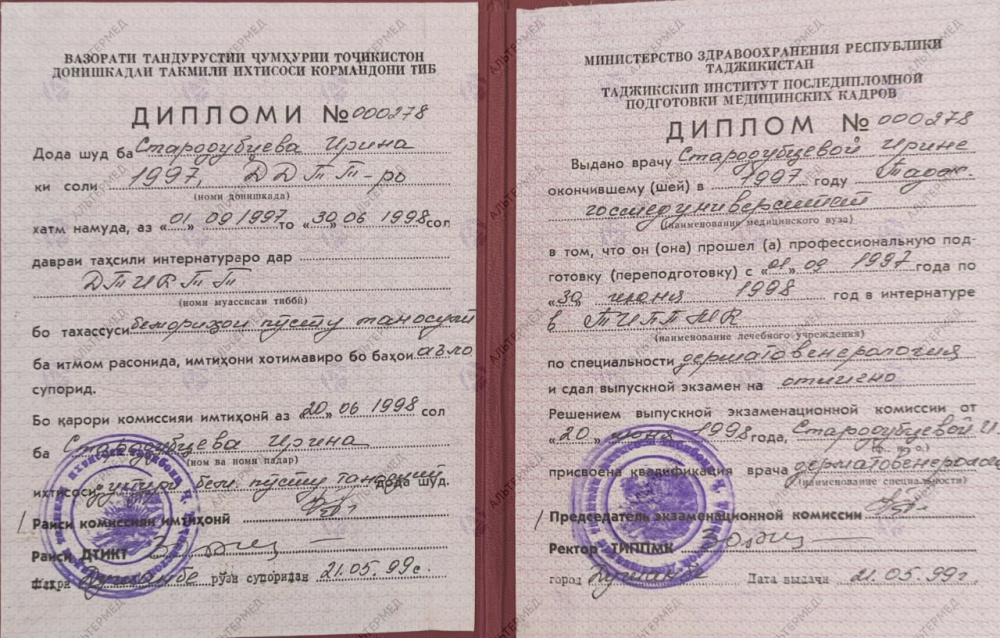 ВАЗОРАТИ ТАНДУРУСТИИ ҶУМҲУРИИ ТОҶИКИСТОН
ДОНИШКАДАИ ТАКМИЛИ ИХТИСОСИ КОРМАНДОНИ ТИБ
ДИПЛОМИ № 000278
Дода шуд ба Стародубцева Ирина
ки соли 1997, ДДТТ-ро
(номи донишкада)
хатм намуда, аз «01» 09 1997 то «30» 06 1998 сол
давраи таҳсили интернатураро дар
ДТИКТТ
(номи муассисаи тиббӣ)
бо тахассуси бемориҳои пӯсту таносулӣ
ба итмом расонида, имтиҳони хотимавиро бо баҳои аъло
супорид.
Бо қарори комиссияи имтиҳонӣ аз «20» 06 1998 сол
ба Стародубцева Ирина
(ном ва номи падар)
ихтисоси духтури бем. пӯсту дода шуд.
Раиси комиссияи имтиҳонӣ
Раиси ДТИКТ
шаҳри Душанбе рӯзи супоридан 21.05.99с.
МИНИСТЕРСТВО ЗДРАВООХРАНЕНИЯ РЕСПУБЛИКИ
ТАДЖИКИСТАН
ТАДЖИКСКИЙ ИНСТИТУТ ПОСЛЕДИПЛОМНОЙ
ПОДГОТОВКИ МЕДИЦИНСКИХ КАДРОВ
ДИПЛОМ № 000278
Выдано врачу Стародубцевой Ирине
окончившему (шей) в 1997 году Тадж.
госмедуниверситет
(наименование медицинского вуза)
в том, что он (она) прошел (а) профессиональную под-
готовку (переподготовку) с «01» 09 1997 года по
«30» июня 1998 год в интернатуре
в ТИППМК
(наименование лечебного учреждения)
по специальности дерматовенерология
и сдал выпускной экзамен на отлично
Решением выпускной экзаменационной комиссии от
«20» июня 1998 года, Стародубцевой И.
(ф. и. о.)
присвоена квалификация врача дерматовенеролога
(наименование специальности)
Председатель экзаменационной комиссии
Ректор ТИППМК
город Душанбе Дата выдачи 21.05.99г.
АЛЬТЕРМЕД